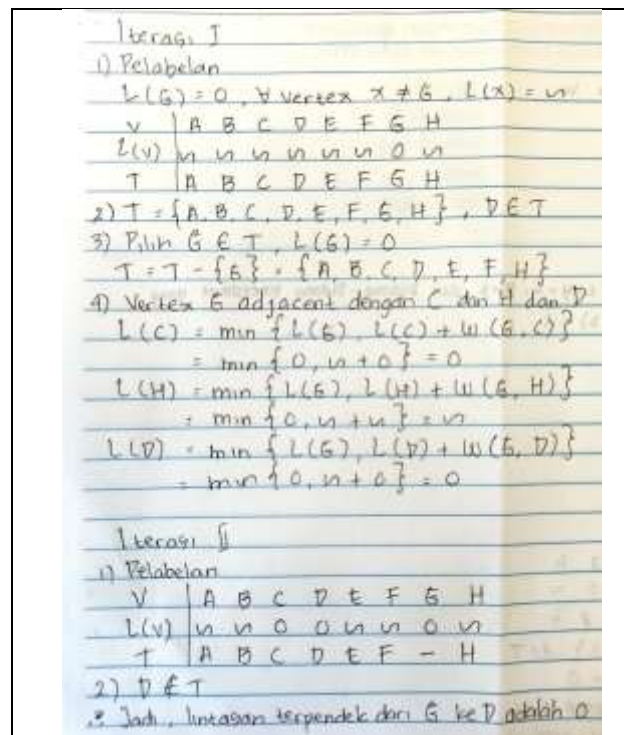 Iterasi I
1) Pelabelan
L(G) = 0, ∀ vertex x ≠ G, L(x) = ∽
V | A B C D E F G H
L(v) | ∽ ∽ ∽ ∽ ∽ ∽ 0 ∽
T | A B C D E F G H
2) T = {A, B, C, D, E, F, G, H}, D ∈ T
3) Pilih G ∈ T, L(G) = 0
T = T - {G} = {A, B, C, D, E, F, H}
4) Vertex G adjacent dengan C dan H dan D
L(C) = min {L(G), L(C) + W(G, C)}
= min {0, ∽ + 0} = 0
L(H) = min {L(G), L(H) + W(G, H)}
= min {0, ∽ + ∽} = ∽
L(D) = min {L(G), L(D) + W(G, D)}
= min {0, ∽ + 0} = 0
Iterasi II
1) Pelabelan
V | A B C D E F G H
L(v) | ∽ ∽ 0 0 ∽ ∽ 0 ∽
T | A B C D E F - H
2) D ∉ T
∴ Jadi, lintasan terpendek dari G ke D adalah 0